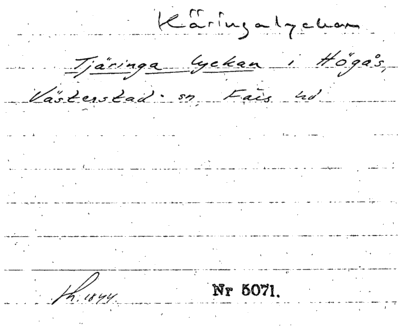 Käringalyckan
Tjäringa lyckan i Högås,
Västerstad sn, Färs hd
Lh. 1844.
Nr 5071.